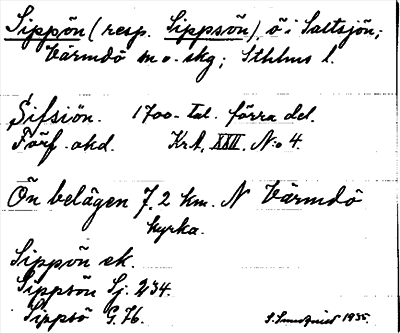 Sippön (resp. Sippsön), ö i Saltsjön;
Värmdö sn o. skg; Sthlms l.
Sifsiön. 1700-tal. förra del.
Förf. okd. Krt. XXII. N:o 4.
Ön belägen 7,2 km. N Värmdö
kyrka.
Sippön ek.
Sippsön Sj. 234.
Sippsö G. 76.
1935.